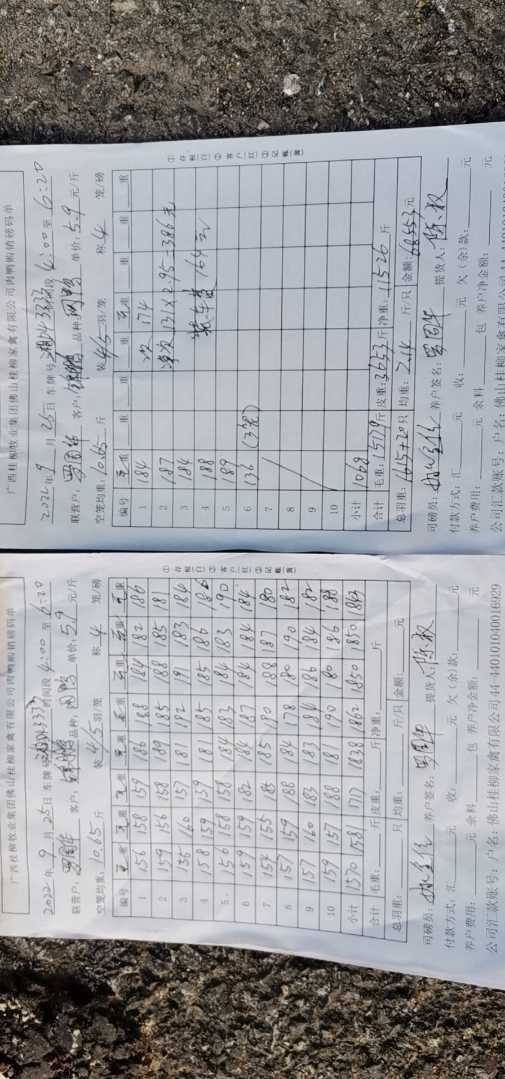 广西桂柳牧业集团佛山桂柳家禽有限公司肉鸭购销磅码单
2022年9月25日 车牌号 时间段 4:00 至 6:20
联营户: 客户: 品种:网鸭 单价:5.9元/斤
空笼均重:10.65斤 装4/5羽/笼 称4笼/磅
编号 毛重 毛重 毛重 毛重 毛重 毛重 毛重 毛重
1 156 158 159 186 188 184 182 186
2 159 156 158 189 185 188 185 181
3 156 160 157 181 192 191 183 184
4 158 159 159 181 185 185 186 186
5 156 158 158 184 183 184 183 190
6 159 159 182 184 187 184 184
7 155 185 185 190 188 187 180
8 157 159 188 184 178 180 190 182
9 157 160 183 183 187 186 184 182
10 159 157 188 181 190 186 188
小计 1570 1581 1717 1838 1862 1850 1850
合计 毛重: 斤 皮重: 斤 净重: 斤
总羽重: 只 均重: 斤/只 金额: 元
司磅员: 养户签名: 提货人:
付款方式:汇 元 收: 元 欠(余)款: 元
养户费用: 元 余料 包 养户净金额: 元
公司汇款账号:户名:佛山桂柳家禽有限公司 44-440101040016929
①存根白②客户红③记账黄
广西桂柳牧业集团佛山桂柳家禽有限公司肉鸭购销磅码单
2022年9月25日 车牌号 时间段 4:00 至 6:20
联营户: 客户: 品种:网鸭 单价:5.9元/斤
空笼均重:10.65斤 装4/5羽/笼 称4笼/磅
编号 毛重 重 重 毛重 重 重
1 184 174
2 187 131×2.95=386元
3 184
4 188 装车费 164元
5 189
6 136
7
8
9
10
小计 1068
合计 毛重:15179斤 皮重:3653斤 净重:11526斤
总羽重: 只 均重:2.14斤/只 金额:68553元
司磅员: 养户签名: 提货人:
付款方式:汇 元 收: 元 欠(余)款: 元
养户费用: 元 余料 包 养户净金额: 元
公司汇款账号:户名:佛山桂柳家禽有限公司
①存根白②客户红③记账黄